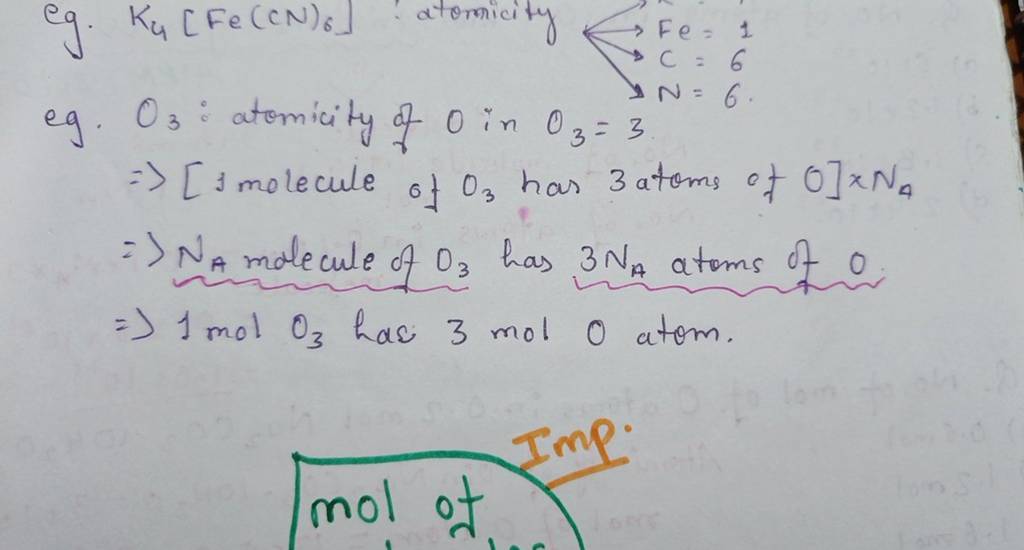 eg. K4 [Fe(CN)6] : atomicity
Fe = 1
C = 6
N = 6.
eg. O3 : atomicity of O in O3 = 3
=> [1 molecule of O3 has 3 atoms of O] x NA
=> NA molecule of O3 has 3NA atoms of O.
=> 1 mol O3 has 3 mol O atom.
Imp.
mol of